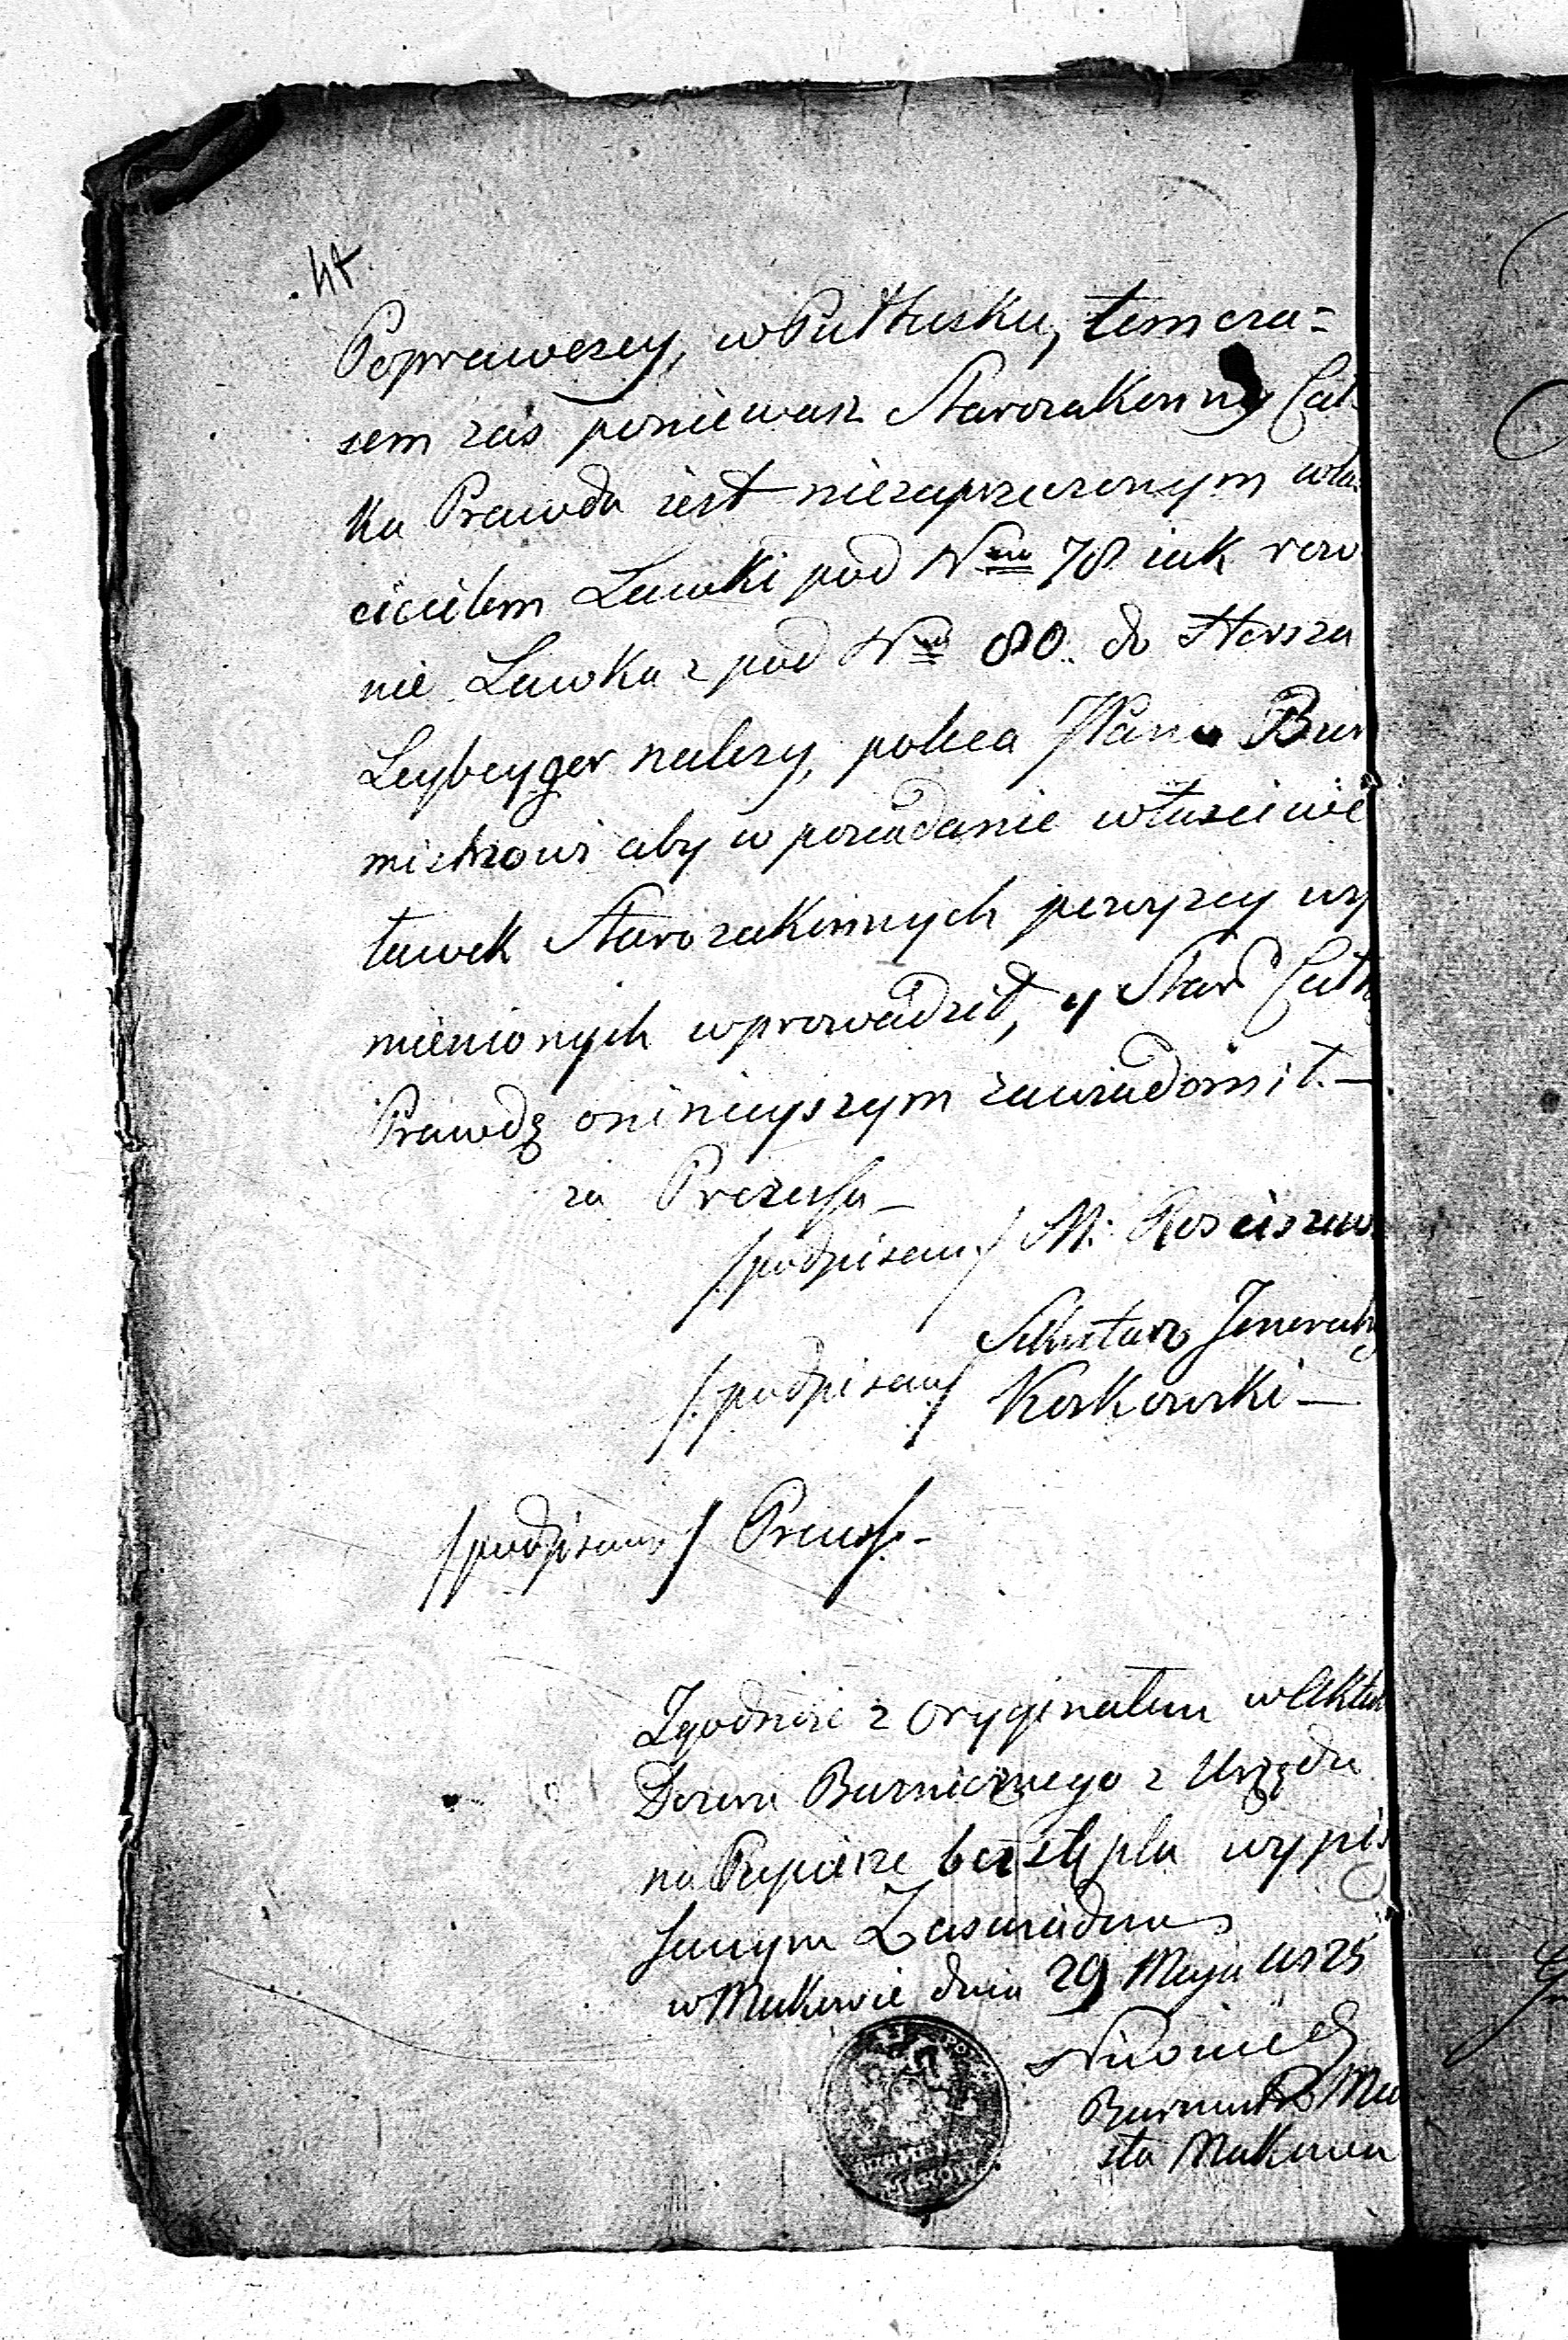 47
Poprawczey, w Pułtusku, tem cza=
sem zaś ponieważ Starozakonny Cal
ka Prawda iest niezaprzeczonym wła
ścicielem Ławki pod Nrm 78 iak row
nie Ławka z pod Nru 80. do Hersza
Leybeyger należy, poleca JPanu Bur
mistrzowi aby w posiadanie właściwie
ławek Starozakonnych powyzey wy
mienionych wprowadził, y Staro
Prawdę oninieyszym zawiadomił. —
za Prezesa —
/podpisany/ M: Rościszew
Sekretarz Jeneralny
/podpisany/ Koskowski —
/podpisany/
Zgodność z oryginałem w Aktach
Bozni z Urzędu
na Papierze bez stępla wypi
sanym Zaswiadcza
w Makowie dnia 29 Maja 1825
Burmistrz Mia
sta Makowa